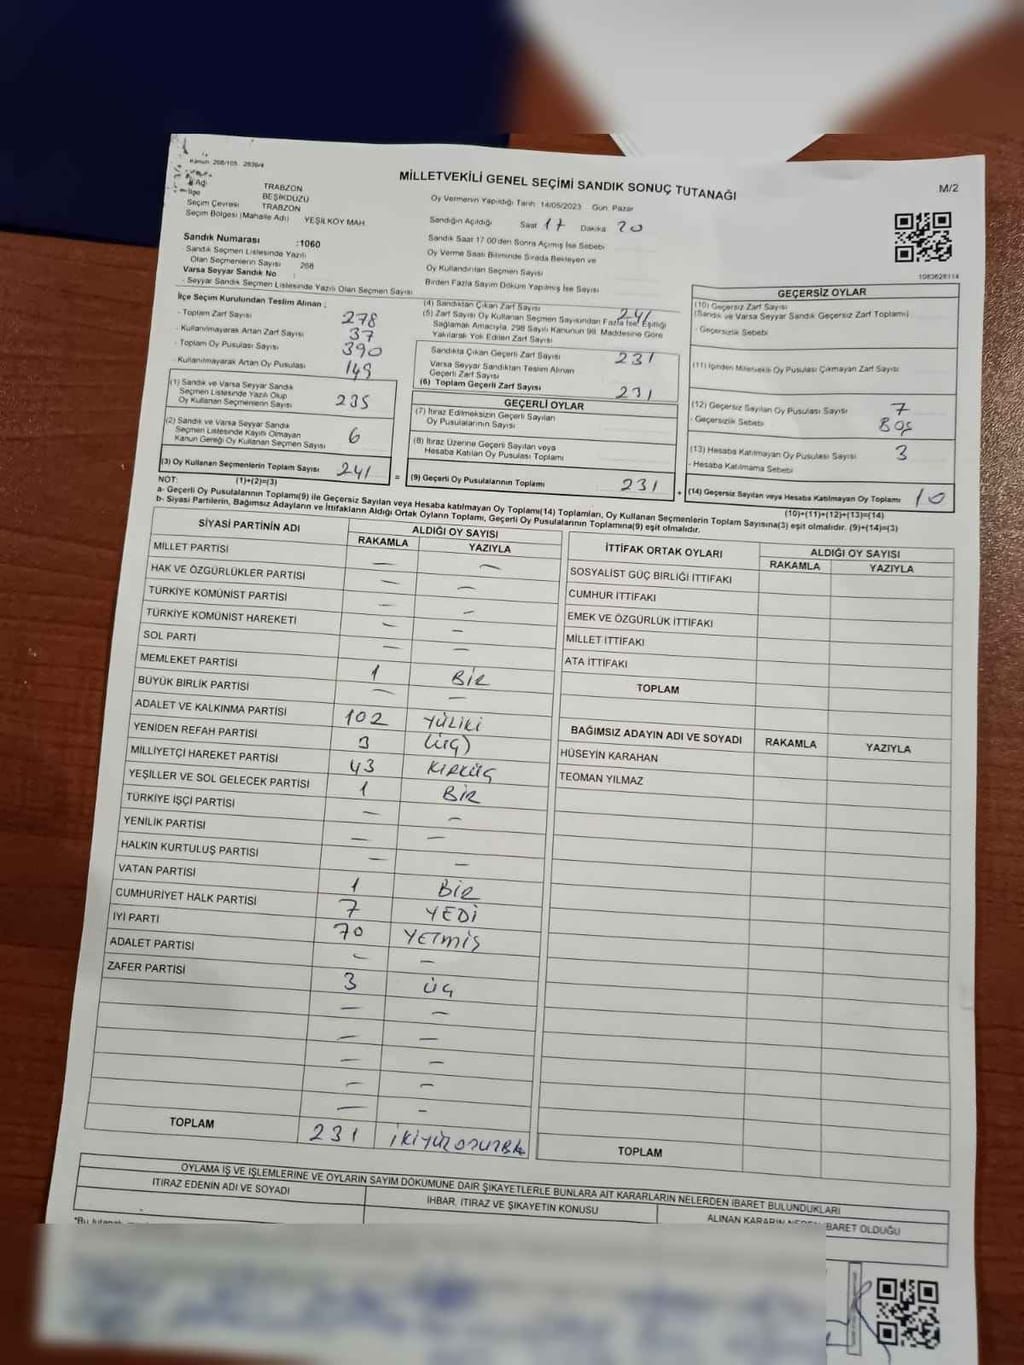 Kanun: 298/105 2839/4
MİLLETVEKİLİ GENEL SEÇİMİ SANDIK SONUÇ TUTANAĞI
M/2
İli Adı TRABZON
İlçe BEŞİKDÜZÜ
Seçim Çevresi TRABZON
Seçim Bölgesi (Mahalle Adı) YEŞİLKÖY MAH.
Oy Vermenin Yapıldığı Tarih: 14/05/2023 Gün: Pazar
Sandığın Açıldığı Saat 17 Dakika 20
Sandık Saat 17:00'den Sonra Açılmış İse Sebebi
Oy Verme Saati Bitiminde Sırada Bekleyen ve
Oy Kullandırılan Seçmen Sayısı
Birden Fazla Sayım Döküm Yapılmış İse Sayısı
1083628114
Sandık Numarası :1060
Sandık Seçmen Listesinde Yazılı
Olan Seçmenlerin Sayısı 268
Varsa Seyyar Sandık No :
- Seyyar Sandık Seçmen Listesinde Yazılı Olan Seçmen Sayısı
İlçe Seçim Kurulundan Teslim Alınan ;
- Toplam Zarf Sayısı 278
- Kullanılmayarak Artan Zarf Sayısı 37
- Toplam Oy Pusulası Sayısı 390
- Kullanılmayarak Artan Oy Pusulası 149
(1) Sandık ve Varsa Seyyar Sandık
Seçmen Listesinde Yazılı Olup
Oy Kullanan Seçmenlerin Sayısı 235
(2) Sandık ve Varsa Seyyar Sandık
Seçmen Listesinde Kayıtlı Olmayan
Kanun Gereği Oy Kullanan Seçmen Sayısı 6
(3) Oy Kullanan Seçmenlerin Toplam Sayısı 241 =
(1)+(2)=(3)
(4) Sandıktan Çıkan Zarf Sayısı 241
(5) Zarf Sayısı Oy Kullanan Seçmen Sayısından Fazla İse, Eşitliği
Sağlamak Amacıyla, 298 Sayılı Kanunun 98. Maddesine Göre
Yakılarak Yok Edilen Zarf Sayısı
Sandıkta Çıkan Geçerli Zarf Sayısı 231
Varsa Seyyar Sandıktan Teslim Alınan
Geçerli Zarf Sayısı
(6) Toplam Geçerli Zarf Sayısı 231
GEÇERLİ OYLAR
(7) İtiraz Edilmeksizin Geçerli Sayılan
Oy Pusulalarının Sayısı
(8) İtiraz Üzerine Geçerli Sayılan veya
Hesaba Katılan Oy Pusulası Toplamı
(9) Geçerli Oy Pusulalarının Toplamı 231 +
GEÇERSİZ OYLAR
(10) Geçersiz Zarf Sayısı
(Sandık ve Varsa Seyyar Sandık Geçersiz Zarf Toplamı)
- Geçersizlik Sebebi
(11) İçinden Milletvekili Oy Pusulası Çıkmayan Zarf Sayısı
(12) Geçersiz Sayılan Oy Pusulası Sayısı 7
- Geçersizlik Sebebi BOŞ
(13) Hesaba Katılmayan Oy Pusulası Sayısı 3
- Hesaba Katılmama Sebebi
(14) Geçersiz Sayılan veya Hesaba Katılmayan Oy Toplamı 10
(10)+(11)+(12)+(13)=(14)
NOT:
a- Geçerli Oy Pusulalarının Toplamı(9) ile Geçersiz Sayılan veya Hesaba katılmayan Oy Toplamı(14) Toplamları, Oy Kullanan Seçmenlerin Toplam Sayısına(3) eşit olmalıdır. (9)+(14)=(3)
b- Siyasi Partilerin, Bağımsız Adayların ve İttifakların Aldığı Ortak Oyların Toplamı, Geçerli Oy Pusulalarının Toplamına(9) eşit olmalıdır.
SİYASİ PARTİNİN ADI ALDIĞI OY SAYISI
RAKAMLA YAZIYLA
MİLLET PARTİSİ — —
HAK VE ÖZGÜRLÜKLER PARTİSİ — —
TÜRKİYE KOMÜNİST PARTİSİ — —
TÜRKİYE KOMÜNİST HAREKETİ — —
SOL PARTİ — —
MEMLEKET PARTİSİ 1 BİR
BÜYÜK BİRLİK PARTİSİ — —
ADALET VE KALKINMA PARTİSİ 102 YÜZİKİ
YENİDEN REFAH PARTİSİ 3 (ÜÇ)
MİLLİYETÇİ HAREKET PARTİSİ 43 KIRKÜÇ
YEŞİLLER VE SOL GELECEK PARTİSİ 1 BİR
TÜRKİYE İŞÇİ PARTİSİ — —
YENİLİK PARTİSİ — —
HALKIN KURTULUŞ PARTİSİ — —
VATAN PARTİSİ 1 BİR
CUMHURİYET HALK PARTİSİ 7 YEDİ
İYİ PARTİ 70 YETMİŞ
ADALET PARTİSİ — —
ZAFER PARTİSİ 3 ÜÇ
— —
— —
— —
— —
— —
TOPLAM 231
İTTİFAK ORTAK OYLARI ALDIĞI OY SAYISI
RAKAMLA YAZIYLA
SOSYALİST GÜÇ BİRLİĞİ İTTİFAKI
CUMHUR İTTİFAKI
EMEK VE ÖZGÜRLÜK İTTİFAKI
MİLLET İTTİFAKI
ATA İTTİFAKI
TOPLAM
BAĞIMSIZ ADAYIN ADI VE SOYADI RAKAMLA YAZIYLA
HÜSEYİN KARAHAN
TEOMAN YILMAZ
TOPLAM
OYLAMA İŞ VE İŞLEMLERİNE VE OYLARIN SAYIM DÖKÜMÜNE DAİR ŞİKAYETLERLE BUNLARA AİT KARARLARIN NELERDEN İBARET BULUNDUKLARI
İTİRAZ EDENİN ADI VE SOYADI İHBAR, İTİRAZ VE ŞİKAYETİN KONUSU ALINAN KARARIN NEDEN İBARET OLDUĞU